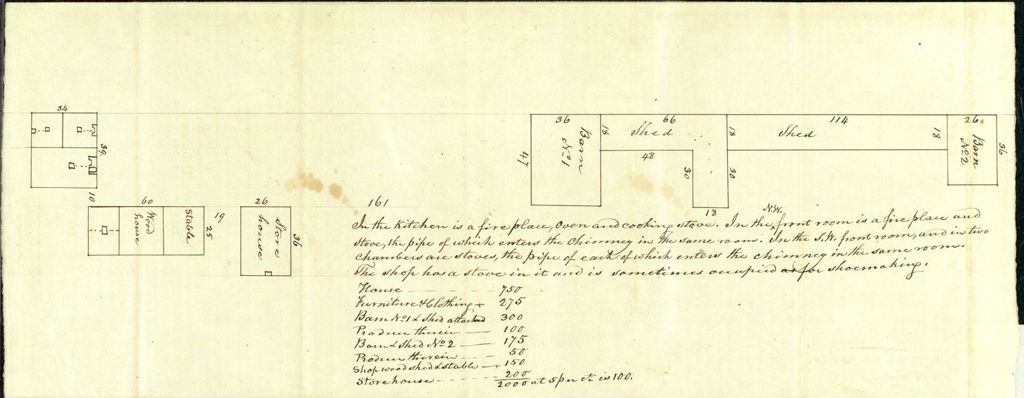 34
39
10
60
Wood house
Stable
25
19
26
Store house
36
161
36
47
Barn No. 1
18
66
Shed
48
30
18
30
18
114
Shed
18
26
Barn No. 2
36
In the kitchen is a fire place, oven and cooking stove. In the N.W. front room is a fire place and
stove, the pipe of which enters the chimney in the same room. In the S.W. front room, and in two
chambers are stoves, the pipe of each of which enters the chimney in the same room.
The shop has a stove in it and is sometimes occupied for shoemaking.
House 750
Furniture & Clothing 275
Barn No. 1 & Shed attached 300
Produce therein 100
Barn & Shed No. 2 175
Produce therein 50
Shop wood shed & stable 150
Storehouse 200
2000 at 5 per ct. is 100.